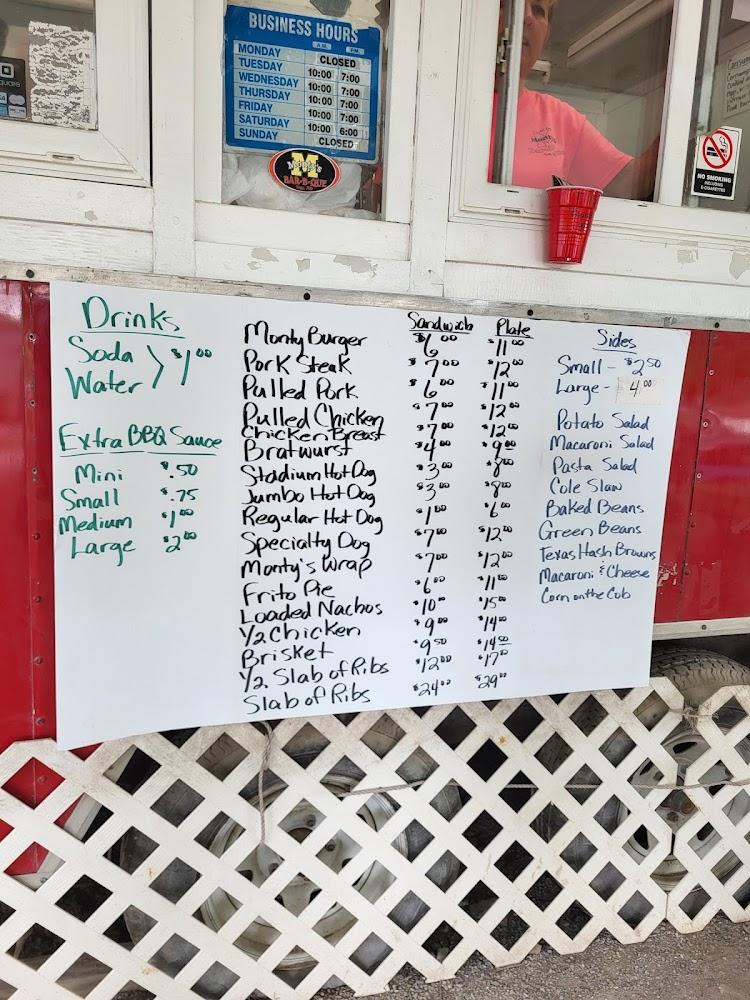 BUSINESS HOURS
A.M. P.M.
MONDAY CLOSED
TUESDAY 10:00 7:00
WEDNESDAY 10:00 7:00
THURSDAY 10:00 7:00
FRIDAY 10:00 7:00
SATURDAY 10:00 6:00
SUNDAY CLOSED
M
Monty's
BAR-B-QUE
NO SMOKING
INCLUDING
E-CIGARETTES
Drinks
Soda
Water } $1.00
Extra BBQ Sauce
Mini $.50
Small $.75
Medium $1.00
Large $2.00
Sandwich Plate
Monty Burger $6.00 $11.00
Pork Steak $7.00 $12.00
Pulled Pork $6.00 $11.00
Pulled Chicken $7.00 $12.00
Chicken Breast $7.00 $12.00
Bratwurst $4.00 $9.00
Stadium Hot Dog $3.00 $8.00
Jumbo Hot Dog $3.00 $8.00
Regular Hot Dog $1.00 $6.00
Specialty Dog $7.00 $12.00
Monty's Wrap $7.00 $12.00
Frito Pie $6.00 $11.00
Loaded Nachos $10.00 $15.00
1/2 Chicken $9.00 $14.00
Brisket $9.50 $14.50
1/2 Slab of Ribs $12.00 $17.00
Slab of Ribs $24.00 $29.00
Sides
Small - $2.50
Large - 4.00
Potato Salad
Macaroni Salad
Pasta Salad
Cole Slaw
Baked Beans
Green Beans
Texas Hash Browns
Macaroni & Cheese
Corn on the Cob